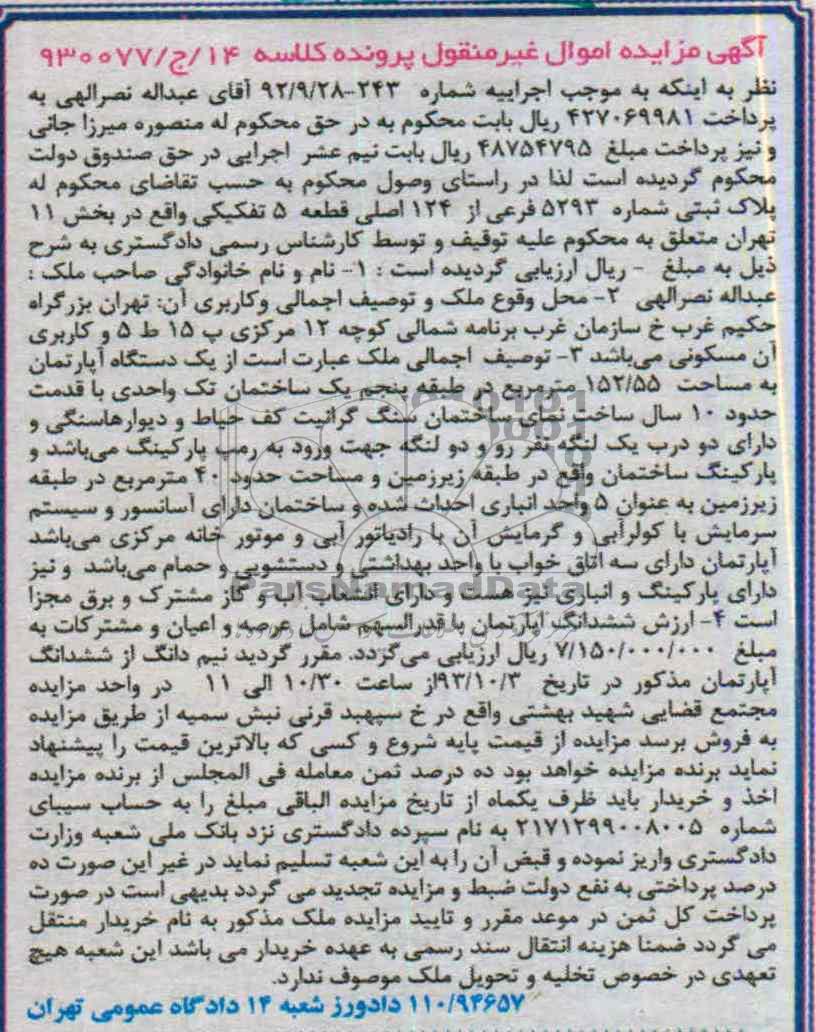 آگهی مزایده اموال غیرمنقول پرونده کلاسه ۱۴/ج/۹۳۰۰۷۷
نظر به اینکه به موجب اجراییه شماره ۲۴۳-۹۲/۹/۲۸ آقای عبداله نصرالهی به
پرداخت ۴۲۷۰۶۹۹۸۱ ریال بابت محکوم به در حق محکوم له منصوره میرزا جانی
و نیز پرداخت مبلغ ۴۸۷۵۴۷۹۵ ریال بابت نیم عشر اجرایی در حق صندوق دولت
محکوم گردیده است لذا در راستای وصول محکوم به حسب تقاضای محکوم له
پلاک ثبتی شماره ۵۲۹۳ فرعی از ۱۲۴ اصلی قطعه ۵ تفکیکی واقع در بخش ۱۱
تهران متعلق به محکوم علیه توقیف و توسط کارشناس رسمی دادگستری به شرح
ذیل به مبلغ - ریال ارزیابی گردیده است : ۱- نام و نام خانوادگی صاحب ملک :
عبداله نصرالهی ۲- محل وقوع ملک و توصیف اجمالی وکاربری آن: تهران بزرگراه
حکیم غرب خ سازمان غرب برنامه شمالی کوچه ۱۲ مرکزی پ ۱۵ ط ۵ و کاربری
آن مسکونی می‌باشد ۳- توصیف اجمالی ملک عبارت است از یک دستگاه آپارتمان
به مساحت ۱۵۲/۵۵ مترمربع در طبقه پنجم یک ساختمان تک واحدی با قدمت
حدود ۱۰ سال ساخت نمای ساختمان سنگ گرانیت کف حیاط و دیوارهاسنگی و
دارای دو درب یک لنگه نفر رو و دو لنگه جهت ورود به رمپ پارکینگ می‌باشد و
پارکینگ ساختمان واقع در طبقه زیرزمین و مساحت حدود ۴۰ مترمربع در طبقه
زیرزمین به عنوان ۵ واحد انباری احداث شده و ساختمان دارای آسانسور و سیستم
سرمایش با کولرآبی و گرمایش آن با رادیاتور آبی و موتور خانه مرکزی می‌باشد
آپارتمان دارای سه اتاق خواب با واحد بهداشتی و دستشویی و حمام می‌باشد و نیز
دارای پارکینگ و انباری نیز هست و دارای انشعاب آب و گاز مشترک و برق مجزا
است ۴- ارزش ششدانگ آپارتمان با قدرالسهم شامل عرصه و اعیان و مشترکات به
مبلغ ۷/۱۵۰/۰۰۰/۰۰۰ ریال ارزیابی می‌گردد. مقرر گردید نیم دانگ از ششدانگ
آپارتمان مذکور در تاریخ ۹۳/۱۰/۳از ساعت ۱۰/۳۰ الی ۱۱ در واحد مزایده
مجتمع قضایی شهید بهشتی واقع در خ سپهبد قرنی نبش سمیه از طریق مزایده
به فروش برسد مزایده از قیمت پایه شروع و کسی که بالاترین قیمت را پیشنهاد
نماید برنده مزایده خواهد بود ده درصد ثمن معامله فی المجلس از برنده مزایده
اخذ و خریدار باید ظرف یکماه از تاریخ مزایده الباقی مبلغ را به حساب سیبای
شماره ۲۱۷۱۲۹۹۰۰۸۰۰۵ به نام سپرده دادگستری نزد بانک ملی شعبه وزارت
دادگستری واریز نموده و قبض آن را به این شعبه تسلیم نماید در غیر این صورت ده
درصد پرداختی به نفع دولت ضبط و مزایده تجدید می گردد بدیهی است در صورت
پرداخت کل ثمن در موعد مقرر و تایید مزایده ملک مذکور به نام خریدار منتقل
می گردد ضمنا هزینه انتقال سند رسمی به عهده خریدار می باشد این شعبه هیچ
تعهدی در خصوص تخلیه و تحویل ملک موصوف ندارد.
۱۱۰/۹۴۶۵۷ دادورز شعبه ۱۴ دادگاه عمومی تهران
ParsNamadData